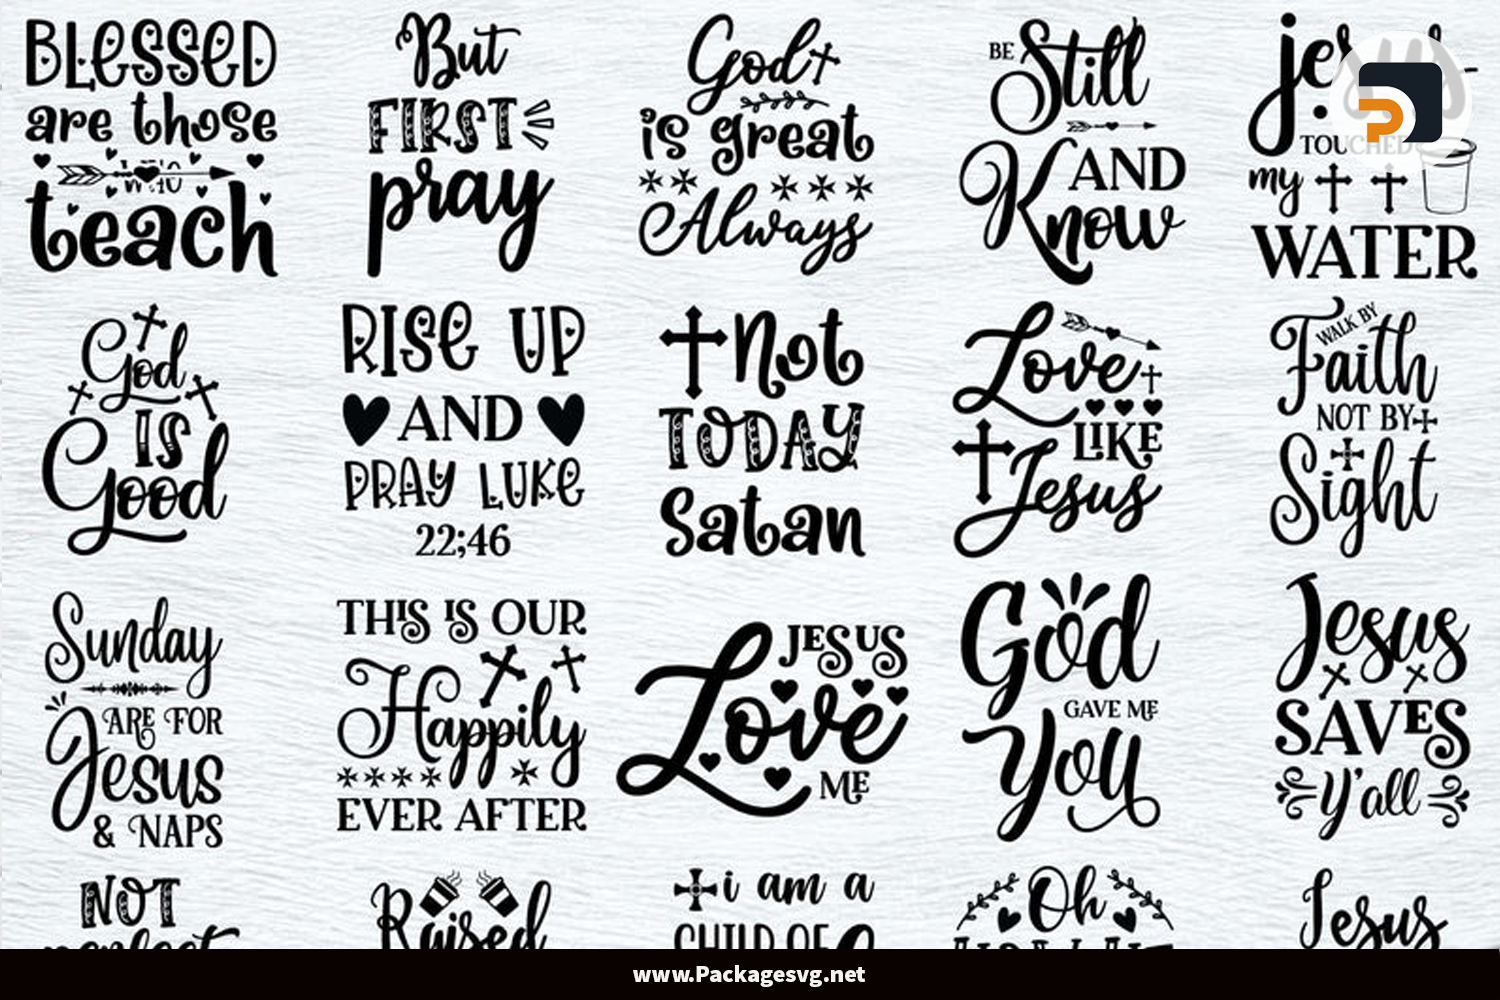 BLESSED
are those
WHO
teach
But
FIRST
pray
God
is great
Always
BE Still
AND
Know
jesus
TOUCHED
my
WATER
God
IS
Good
RISE UP
AND
PRAY LUKE
22;46
Not
TODAY
Satan
Love
LIKE
Jesus
WALK BY
Faith
NOT BY
Sight
Sunday
ARE FOR
Jesus
& NAPS
THIS IS OUR
Happily
EVER AFTER
JESUS
Love
ME
God
GAVE ME
You
Jesus
SAVES
Y'all
NOT
perfect
Raised
i am a
CHILD OF
Oh
Jesus
www.Packagesvg.net